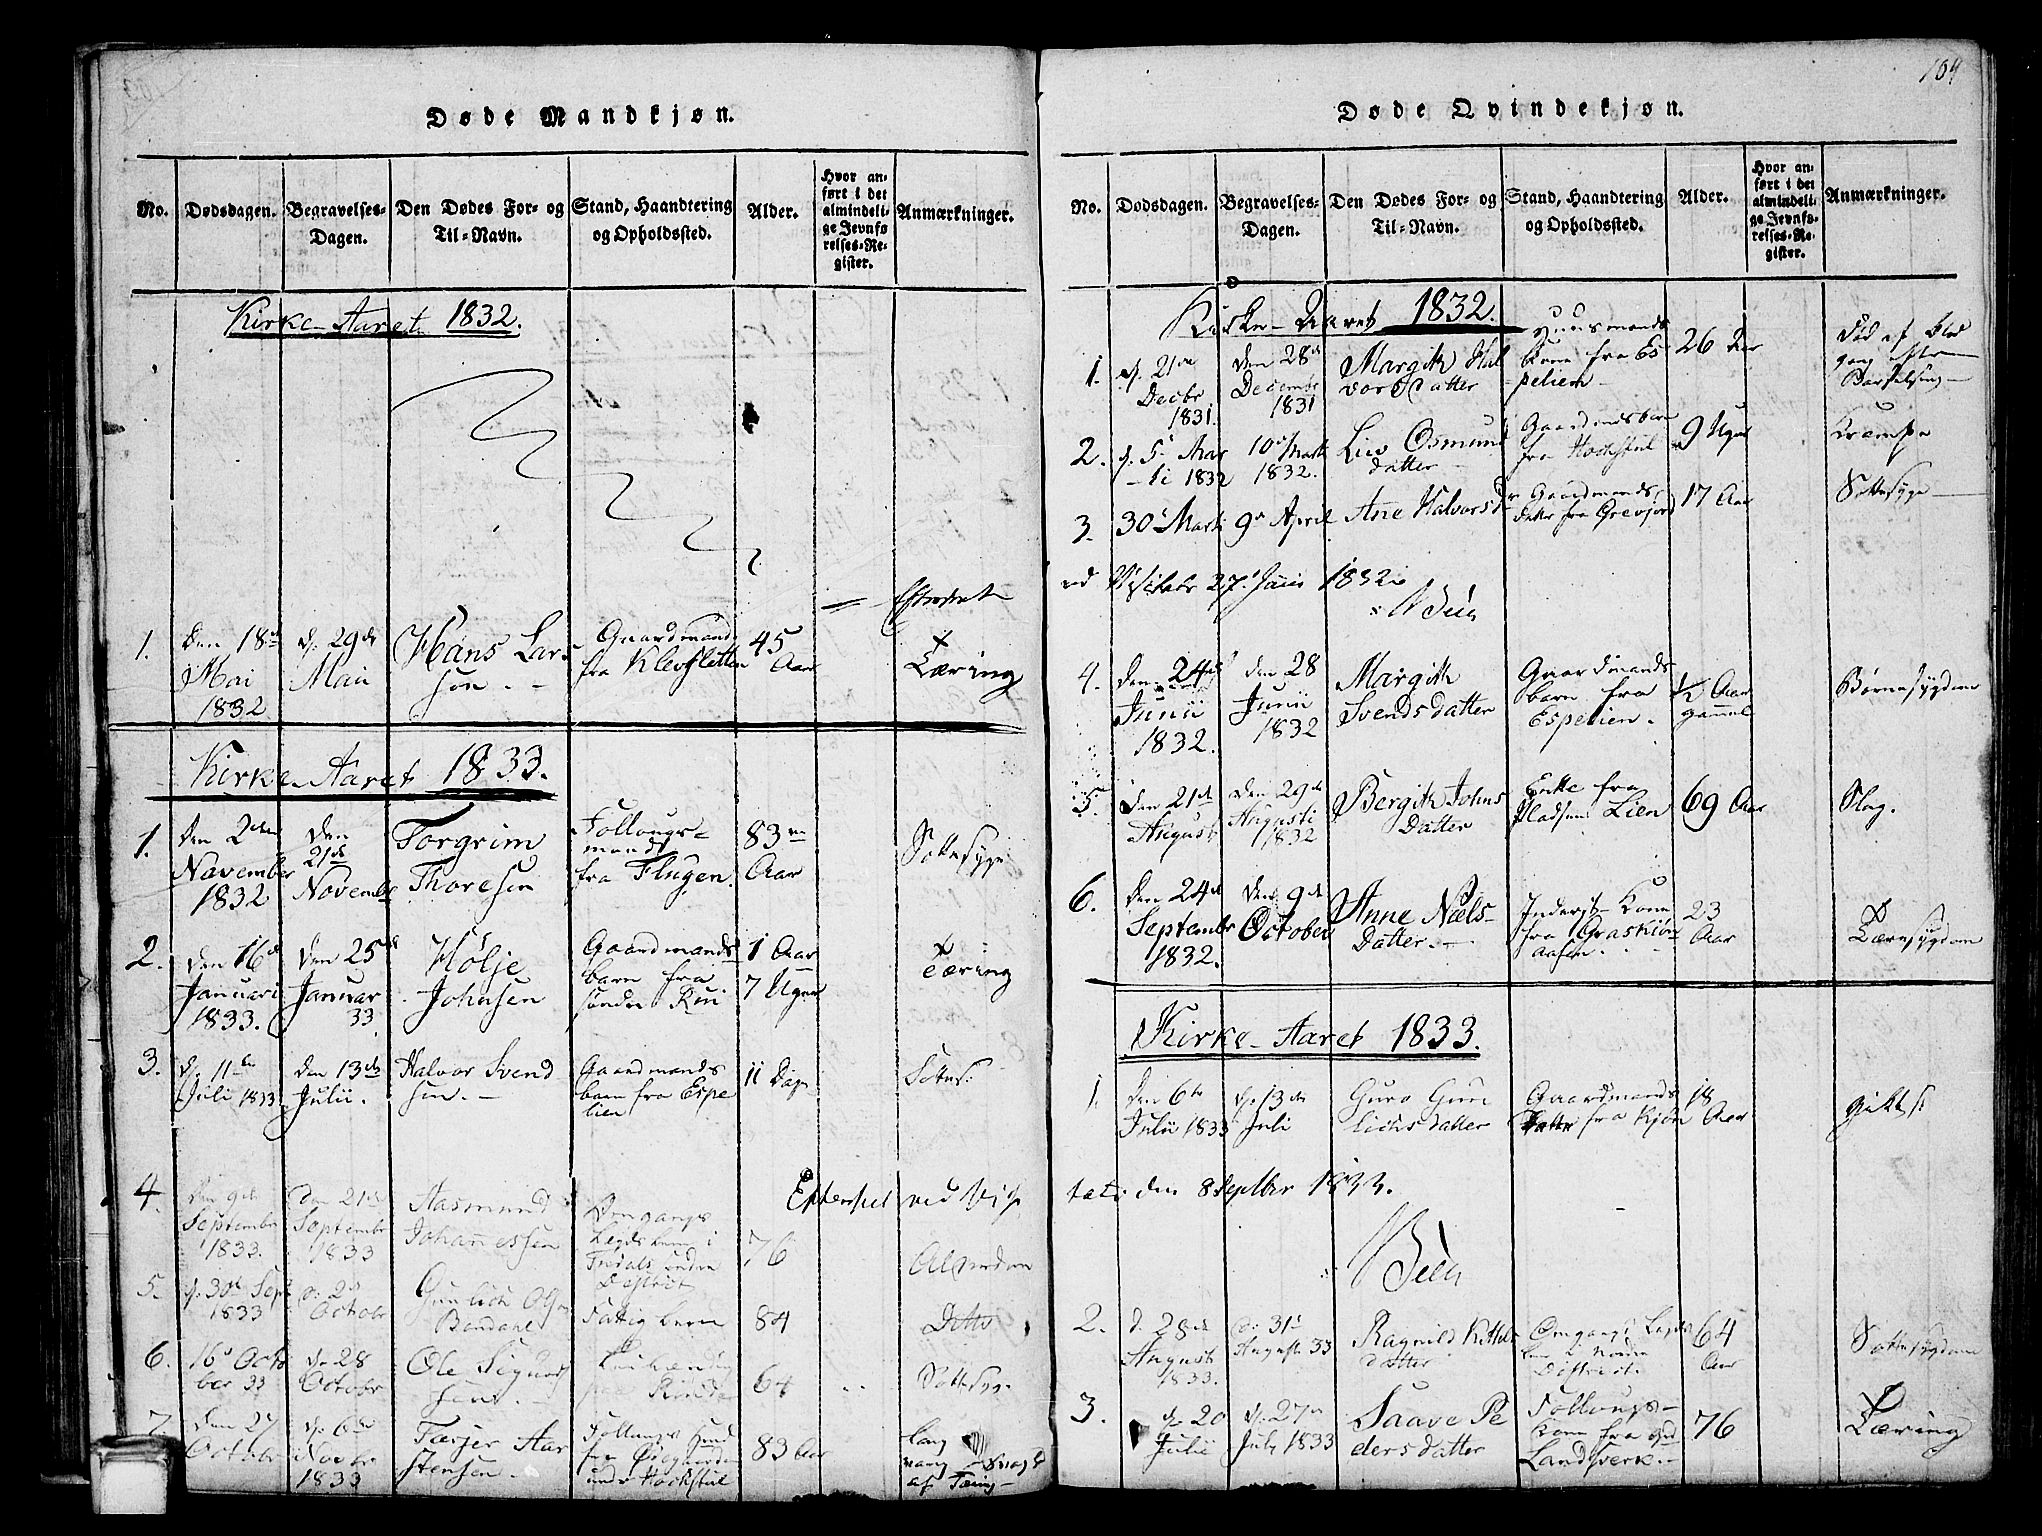 Døde Mandkjøn.
No.
Dødsdagen.
Begravelses-
Dagen.
Den Dødes For- og
Til-Navn.
Stand, Haandtering
og Opholdssted.
Alder.
Hvor an-
ført i det
almindeli-
ge Jevnfø-
relses-Re-
gister.
Anmærkninger.
Kirke-Aaret 1832.
Efterseet
1.
Den 18de
Mai
1832
d. 29de
Maii
Hans Lar-
sen.
Gaardmand
fra Klevsletten
45
Aar
Tæring
Kirke-Aaret 1833.
1.
Den 2den
November
1832
Den
21de
Novembr
Torgrim
Thoresen
Follougs-
mand
fra Flugen.
83
Aar
Sottesyge
2.
Den 16de
Januari
1833.
Den 25de
Januar
33
Hølje
Johnsen
Gaardmands
barn fra
søndre Rui
1 Aar
7 Uger
Tæring
3.
d. 11te
Juli 1833
den 13de
Julii.
Halvor Svend
sen.
Gaardmands
barn fra Espe
lien
11 Dage
Sottes:
4.
Den 9de
Septembr
1833.
Den 21de
Septembr
1833
Aasmund
Johannessen
Omgangs
Legdslem i
District
76
Efterseet ved Visi
Alderdom
5.
d. 30de Sept
1833
d. 2den
Octobr
Gunlich Ols
Bondahl
Fattig lem
84
Ditto
6.
16de Octo
ber 33
d. 28
Octobr
Ole Sigurd
sen.
64
Sottesyg.
7.
Den 27
Octobr
d. 6te
Novbr
1833
Tarjer Aar
stensen.
Follougs
fra
under Hockstul
83 Aar
lang
af Tæring
109
Døde Qvindekjøn.
No.
Dødsdagen.
Begravelses-
Dagen.
Den Dødes For- og
Til-Navn.
Stand, Haandtering
og Opholdssted.
Alder.
Hvor an-
ført i det
almindeli-
ge Jevnfø-
relses-Re-
gister.
Anmærkninger.
Kirke-Aaret 1832.
1.
d. 21de
Decbr
1831.
Den 28de
Decembr
1831
Margith Hal
vors Datter
Huusmands
Kone fra Es-
pelien
26 Aar
Død af Blod
gang efter
Barselseng
2.
d. 5te Mar
ti 1832
10de Marti
1832.
Liv Osmund
datter
Gaardmandsbarn
fra Hockstul
9 Uger
Krampe
3.
30te Marti
9de April
Ane Halvorsd
Gaardmands
datter fra Grevjord
17 Aar
Sottesyge
ved Visitats 27de Junii 1832.
4.
Den 24de
Junii
1832.
Den 28
Junii
1832
Margith
Svendsdatter
Gaardmands
barn fra
Espelien.
1/2 Aar
gammel
Børnesygdom
5.
Den 21de
August
Den 29de
Augusti
1832
Bergith Johns
Datter
Enke fra
Pladsen Lien
69 Aar
Slag.
6.
Den 24de
Septembr
1832.
Den 9de
October
Anne Niels-
Datter.
Inderst Kone
fra Graskiør
aasen.
23
Aar
Kirke-Aaret 1833.
1.
Den 6te
Julii 1833
d. 13de
Juli
Guro Gun
lichsdatter
Gaardmands
Datter fra Kjøn
18
Aar
tats den 8 Septbr 1833.
2.
d. 28de
August
1833.
d. 31te
August 33
Ragnild Kittels
datter
Omgangs Legds
lem i
District
64
Aar
Sottesygdom
3.
d. 20
Julii
d. 27de
July 1833
Saave Pe
dersdatter
Follougs-
Kone fra
Landsverk.
76
Tæring